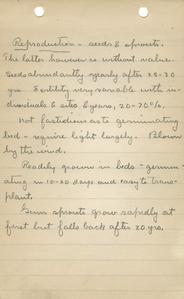 Reproduction - seeds & sprouts.
The latter however is without value.
Seeds abundantly yearly after 25-30
yrs. Fertility very variable with in-
dividuals & sites & years, 20-70%.
Not fastidious as to germinating
bed - require light largely. Blown
by the wind.
Readily grown in beds - germin-
ating in 10-20 days and easy to trans-
plant.
Gum sprouts grow rapidly at
first but falls back after 20 yrs.